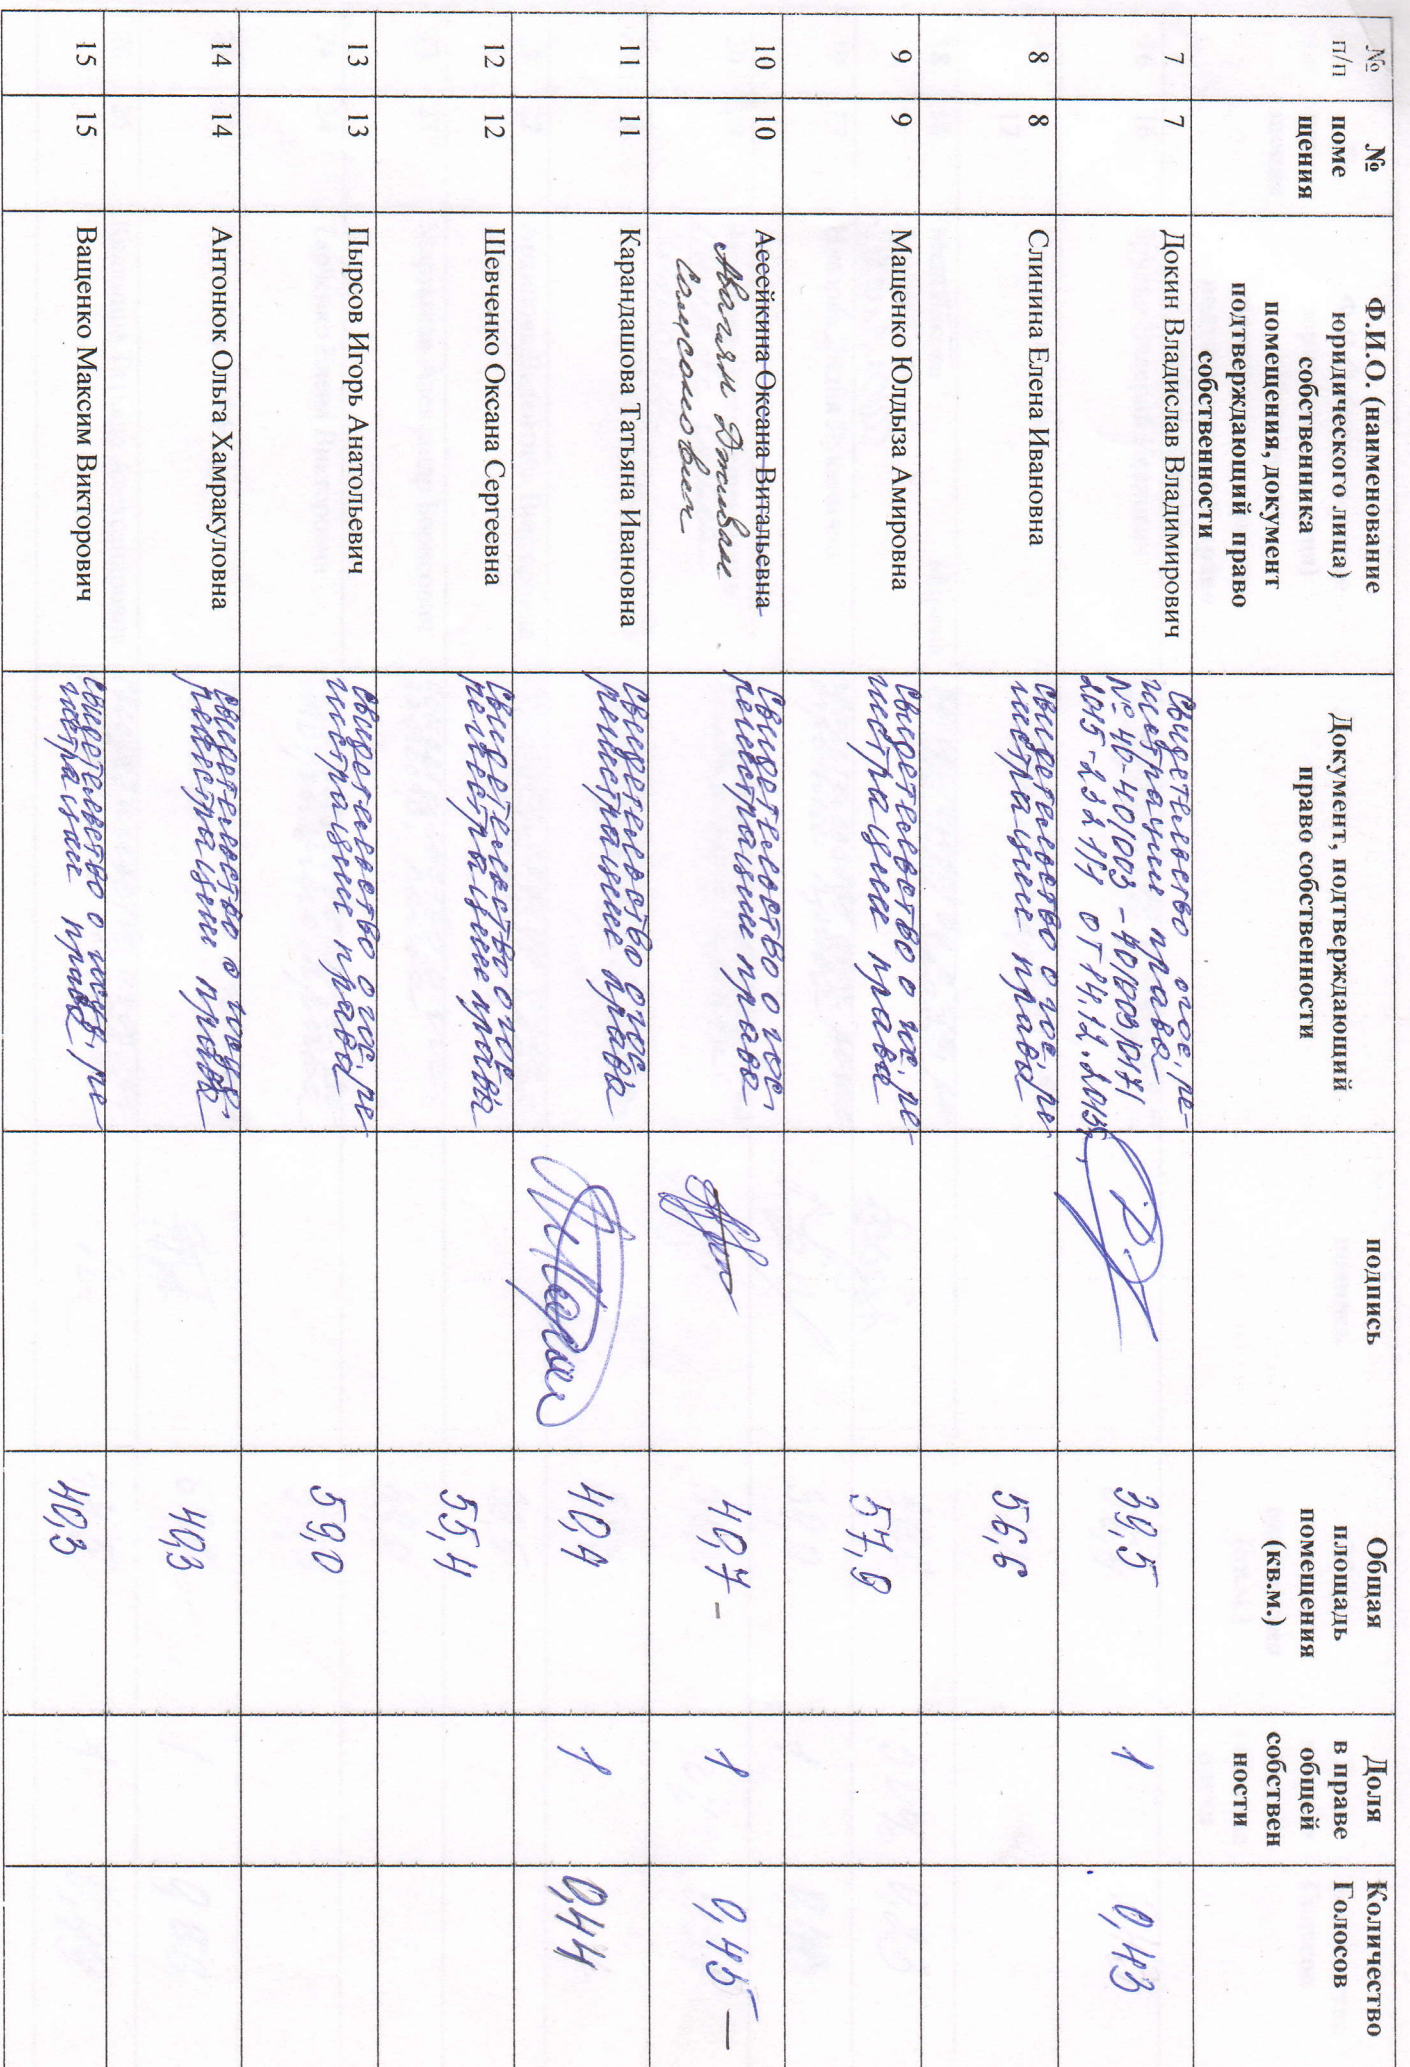 № п/п
№ поме
щения
Ф.И.О. (наименование
юридического лица)
собственника
помещения, документ
подтверждающий право
собственности
Документ, подтверждающий
право собственности
подпись
Общая
площадь
помещения
(кв.м.)
Доля
в праве
общей
собствен
ности
Количество
Голосов
7
7
Докин Владислав Владимирович
Свидетельство о гос, ре-
гистрации права
№ 40-40/003-40/003/017/
2015-
от 14.12.2015г,
39,5
1
0,43
8
8
Слинина Елена Ивановна
Свидетельство о гос, ре
гистрации права
56,6
9
9
Мащенко Юлдыза Амировна
Свидетельство о гос, ре-
гистрации права
57,9
10
10
Асесйкина Оксана Витальевна
Авагян Дживан
Самсонович
Свидетельство о гос-
регистрации права
40,7 -
1
0,45 —
11
11
Карандашова Татьяна Ивановна
Свидетельство о гос
регистрации права
40,4
1
0,44
12
12
Шевченко Оксана Сергеевна
Свидетельство о гос
регистрации права
55,4
13
13
Пырсов Игорь Анатольевич
Свидетельство о гос, ре
гистрации права
59,0
14
14
Антонюк Ольга Хамракуловна
Свидетельство о
регистрации права
40,3
15
15
Ващенко Максим Викторович
Свидетельство о
гистрации права
40,3